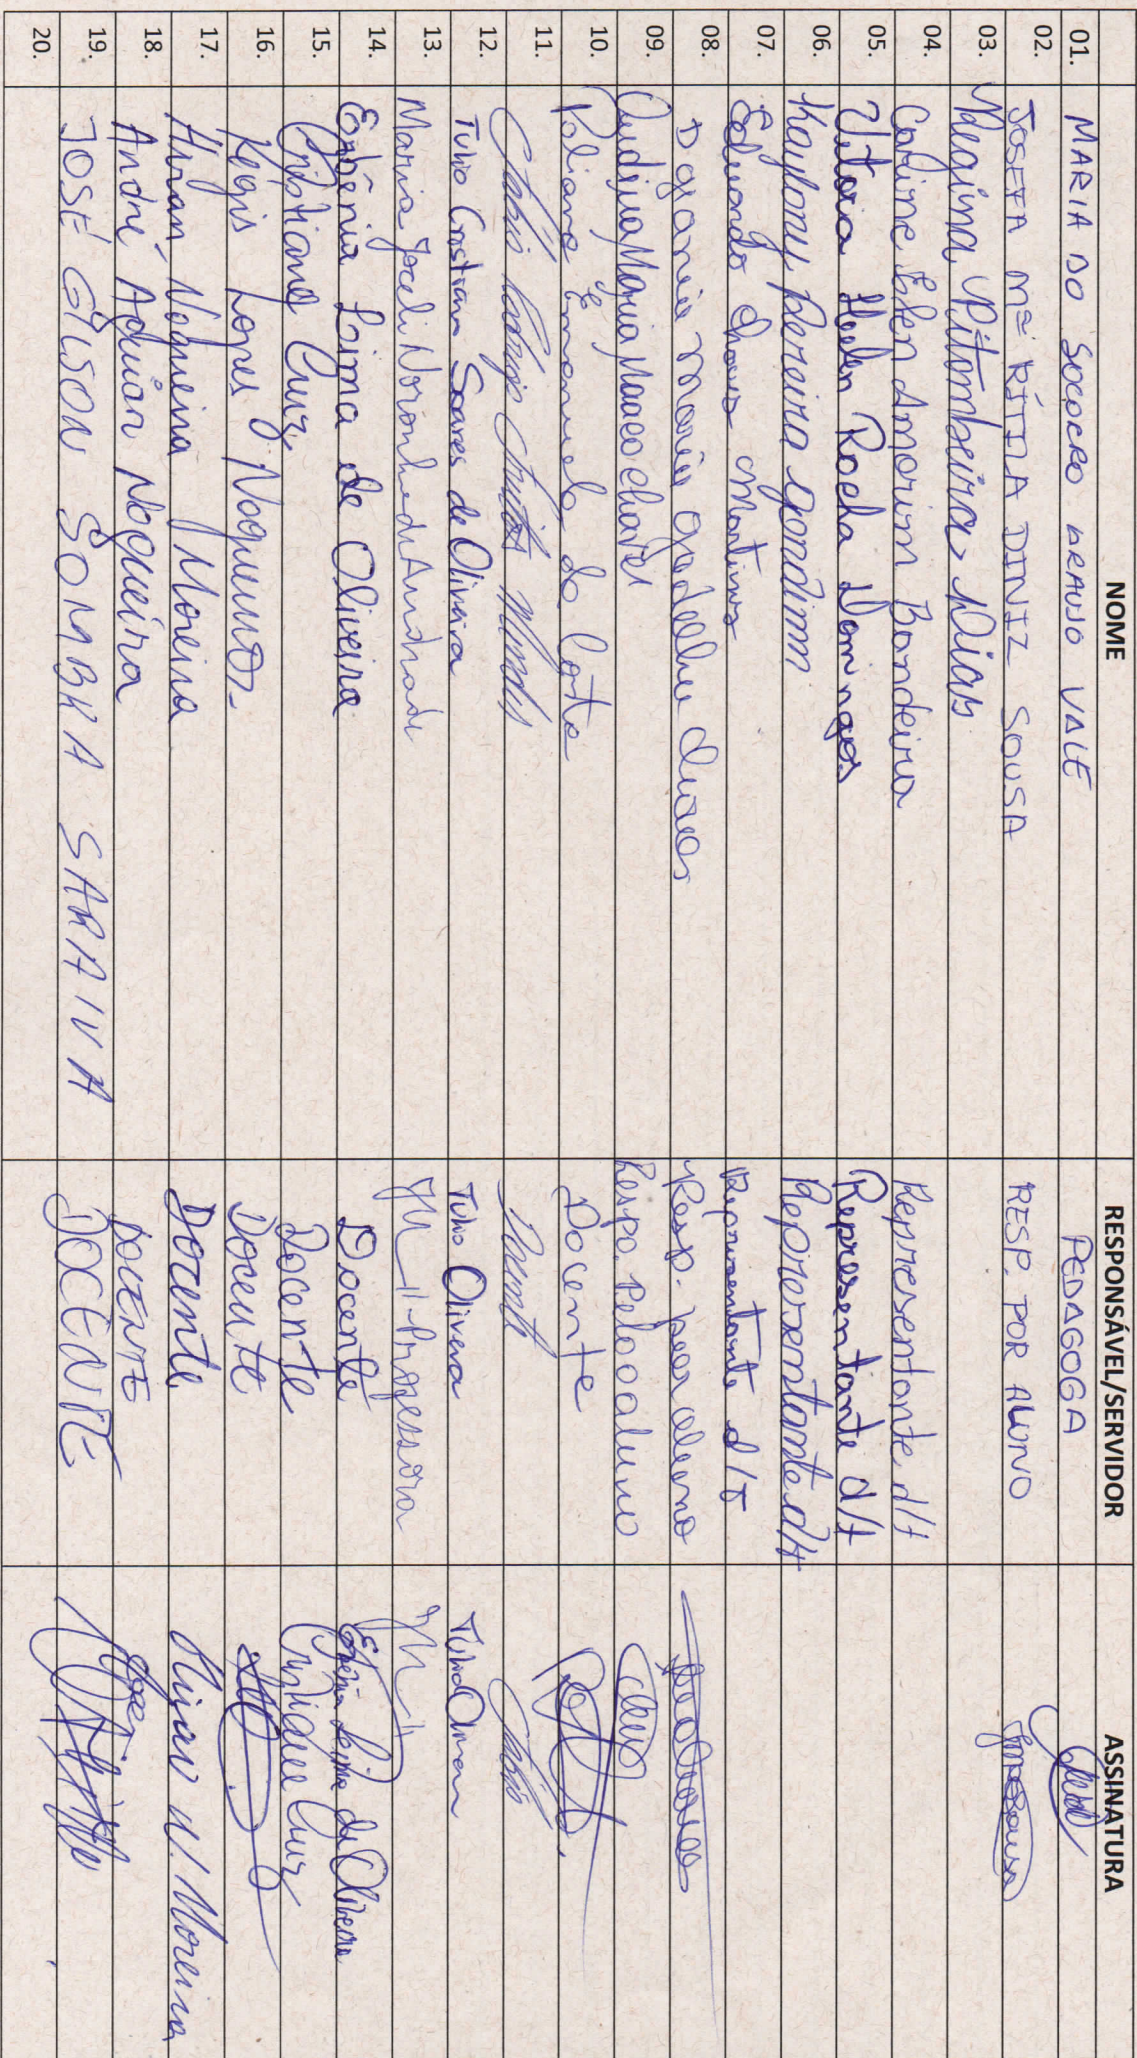 NOME RESPONSÁVEL/SERVIDOR ASSINATURA
01. MARIA DO SOCORRO ARAUJO VALE PEDAGOGA
02. JOSEFA Mª RÍTINA DINIZ SOUSA RESP. POR ALUNO
03. Regina Pitombeira Dias
04. Carine Ellen Amorim Bandeira Representante d/t
05. Vitoria Hellen Rocha Domingos Representante d/t
06. Kaylany Pereira Gondim Representante d/t
07. Eduardo Chaves Martins Representante d/t
08. Dagania Maria Gadelha Resp. por aluno
09. Claudilva Maria Chaves Respo. Pelo aluno
10. Poliana Emanuela da Costa Docente
11.
12. Tulio Cristian Soares de Oliveira Tulio Oliveira Tulio
13. Marria Joceli Noronha de Andrade Professora
14. Eugênia Lima de Oliveira Docente Eugênia Lima de Oliveira
15. Cristiane Cruz Docente Cristiane Cruz
16. Regis Lopes Docente
17. Hiran Nogueira Moreira Docente Hiran N. Moreira
18. André Aguiar Nogueira DOCENTE
19. JOSÉ GILSON SOMBRA SARAIVA DOCENTE
20.